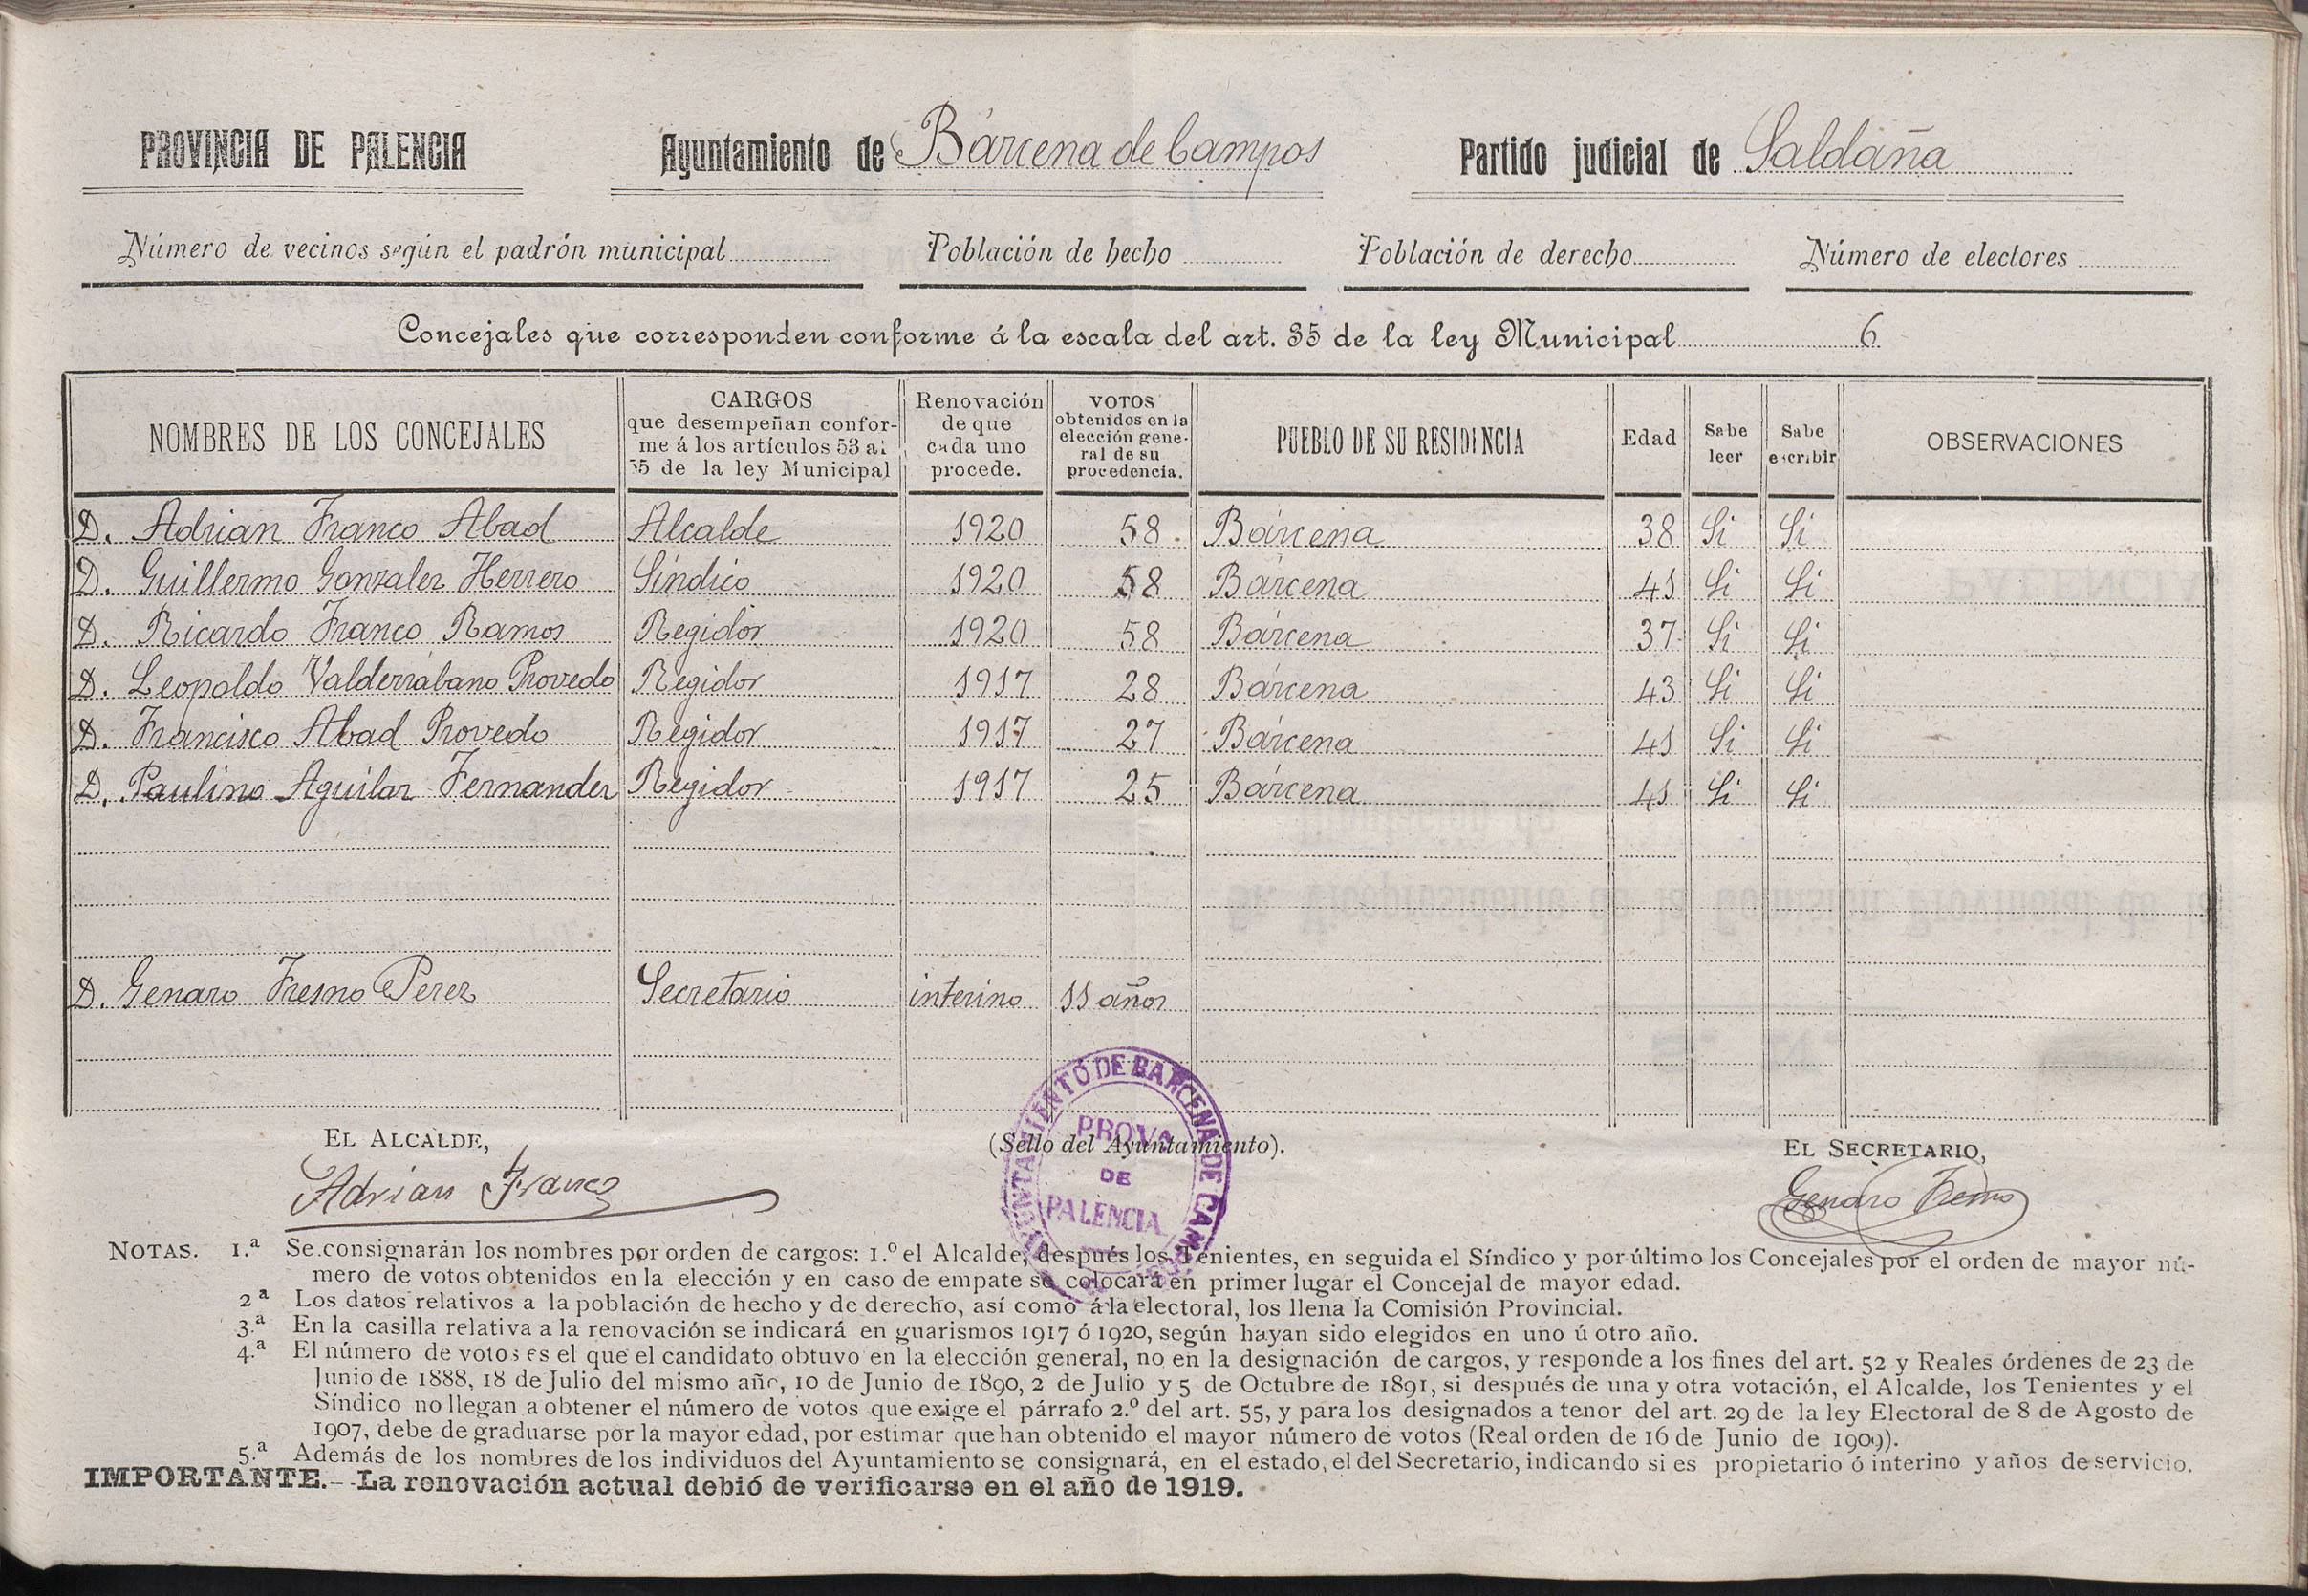 PROVINCIA DE PALENCIA Ayuntamiento de Bárcena de Campos Partido judicial de Saldaña
Número de vecinos según el padrón municipal Población de hecho Población de derecho Número de electores
Concejales que corresponden conforme á la escala del art. 35 de la ley Municipal 6
NOMBRES DE LOS CONCEJALES
CARGOS
que desempeñan confor-
me á los artículos 53 al
55 de la ley Municipal
Renovación
de que
cada uno
procede.
VOTOS
obtenidos en la
elección gene-
ral de su
procedencia.
PUEBLO DE SU RESIDENCIA
Edad
Sabe
leer
Sabe
escribir
OBSERVACIONES
D. Adrian Franco Abad Alcalde 1920 58 Bárcena 38 Si Si
D. Guillermo Gonzalez Herrero Síndico 1920 58 Bárcena 41 Si Si
D. Ricardo Franco Ramos Regidor 1920 58 Bárcena 37 Si Si
D. Leopoldo Valderrábano Provedo Regidor 1917 28 Bárcena 43 Si Si
D. Francisco Abad Provedo Regidor 1917 27 Bárcena 41 Si Si
D. Paulino Aguilar Fernandez Regidor 1917 25 Bárcena 41 Si Si
D. Genaro Fresno Perez Secretario interino 11 años
EL ALCALDE,
(Sello del Ayuntamiento).
EL SECRETARIO,
Adrian Franco
AYUNTAMIENTO DE BARCENA DE CAMPOS
PROVA
DE
PALENCIA
Genaro Fresno
NOTAS. 1.ª Se consignarán los nombres por orden de cargos: 1.º el Alcalde, después los Tenientes, en seguida el Síndico y por último los Concejales por el orden de mayor nú-
mero de votos obtenidos en la elección y en caso de empate se colocará en primer lugar el Concejal de mayor edad.
2ª Los datos relativos a la población de hecho y de derecho, así como á la electoral, los llena la Comisión Provincial.
3.ª En la casilla relativa a la renovación se indicará en guarismos 1917 ó 1920, según hayan sido elegidos en uno ú otro año.
4.ª El número de votos es el que el candidato obtuvo en la elección general, no en la designación de cargos, y responde a los fines del art. 52 y Reales órdenes de 23 de
Junio de 1888, 18 de Julio del mismo año, 10 de Junio de 1890, 2 de Julio y 5 de Octubre de 1891, si después de una y otra votación, el Alcalde, los Tenientes y el
Síndico no llegan a obtener el número de votos que exige el párrafo 2.º del art. 55, y para los designados a tenor del art. 29 de la ley Electoral de 8 de Agosto de
1907, debe de graduarse por la mayor edad, por estimar que han obtenido el mayor número de votos (Real orden de 16 de Junio de 1909).
5.ª Además de los nombres de los individuos del Ayuntamiento se consignará, en el estado, el del Secretario, indicando si es propietario ó interino y años de servicio.
IMPORTANTE.--La renovación actual debió de verificarse en el año de 1919.